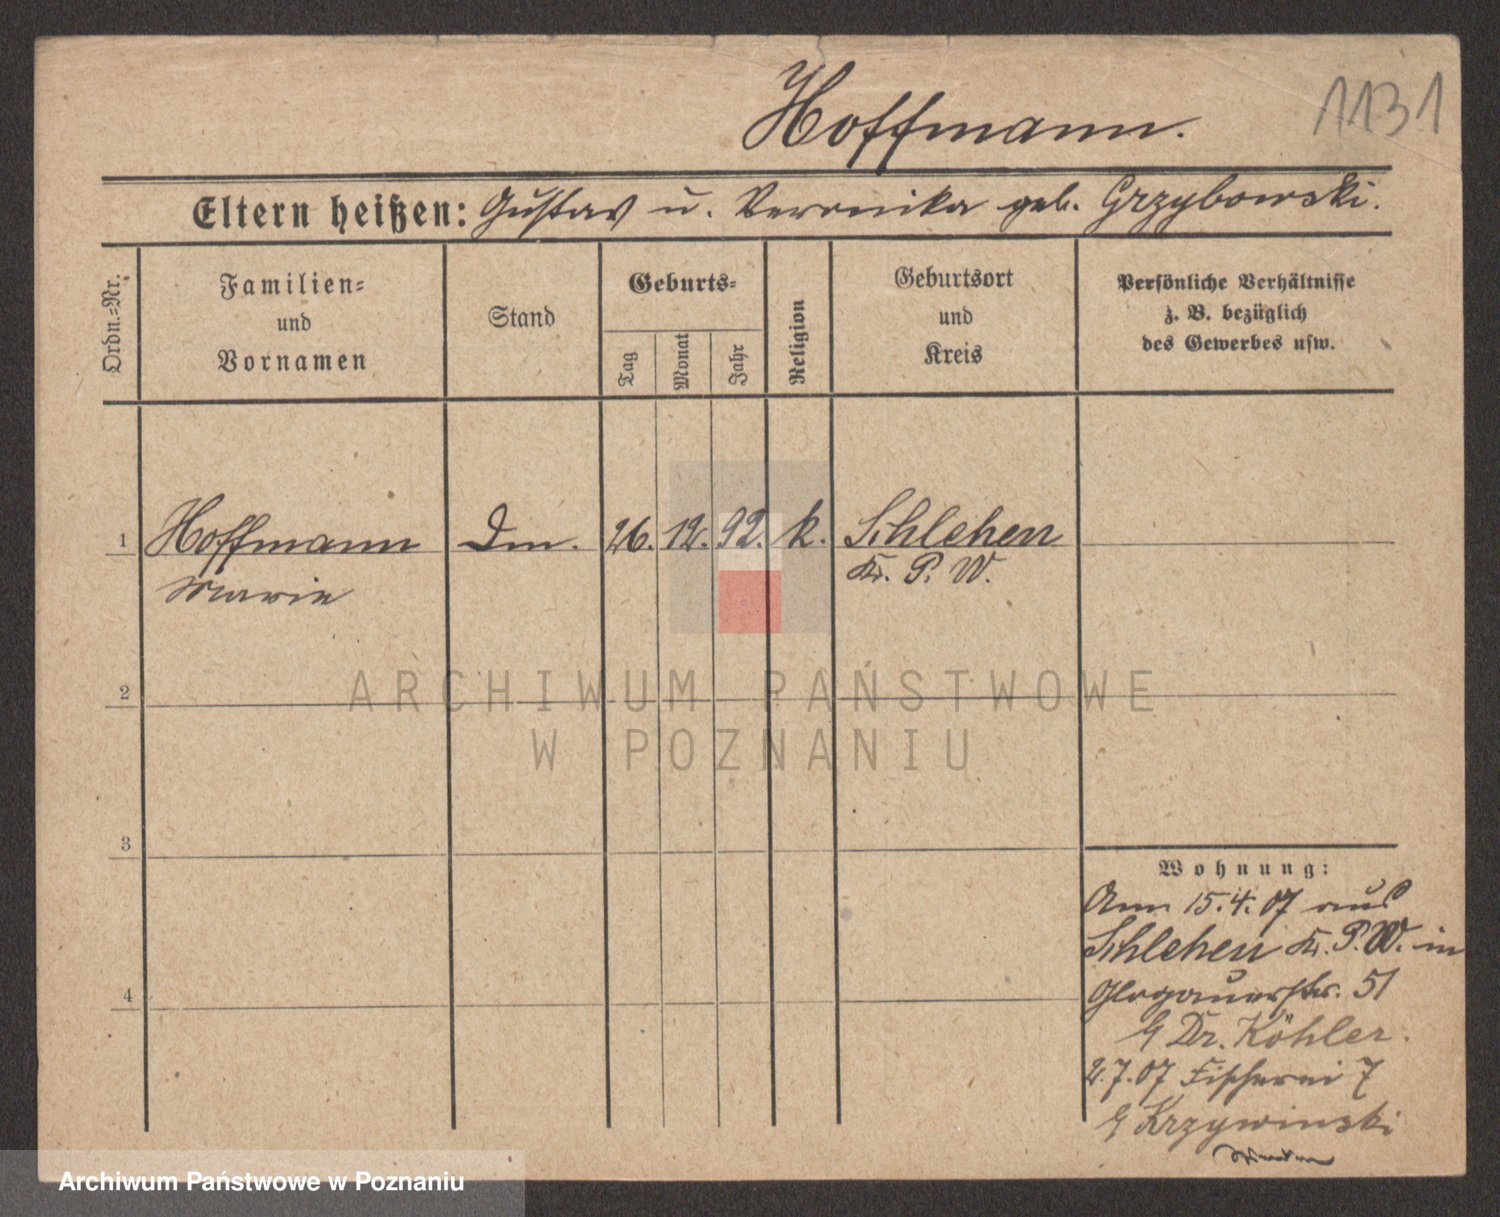 Hoffmann.
1131
Eltern heißen: Gustav u. Veronika geb. Grzybowski.
Ordn.=Nr.
Familien=
und
Vornamen
Stand
Geburts=
Tag
Monat
Jahr
Religion
Geburtsort
und
Kreis
Persönliche Verhältnisse
z. B. bezüglich
des Gewerbes usw.
1 Hoffmann Dm. 26. 12. 92. k. Schlehen
Marie Kr. P. W.
2
ARCHIWUM PAŃSTWOWE
W POZNANIU
3
Wohnung:
Anm 15.4.07 aus
Schlehen Kr. P. W. in
4 Glogauerstr. 51
Dr. Köhler.
2.7.07 Fischerei 7
Krzywinski
Archiwum Państwowe w Poznaniu